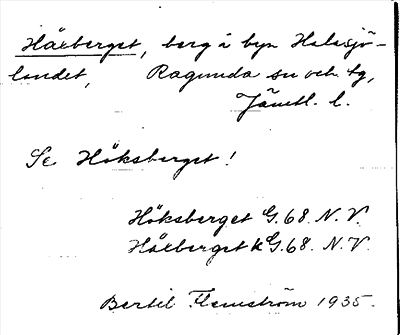 Häxberget, berg i byn Halasjö-
landet, Ragunda sn och tg,
Jämtl. l.
Se Höksberget!
Höksberget G.68. N.V.
Häxberget k G.68. N.V.
Bertil Flemström 1935.